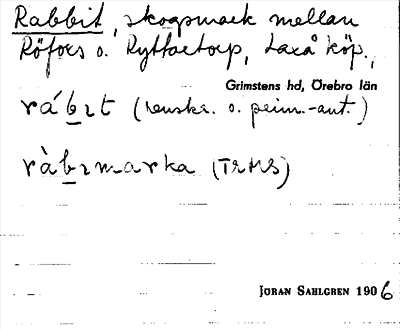 Rabbit, skogsmark mellan
Röfors o. Ryttaretorp, Laxå köp.,
Grimstens hd, Örebro län
rábɪt (renskr. o. prim.-ant.)
ràbɪmarka (TrMS)
JÖRAN SAHLGREN 1906